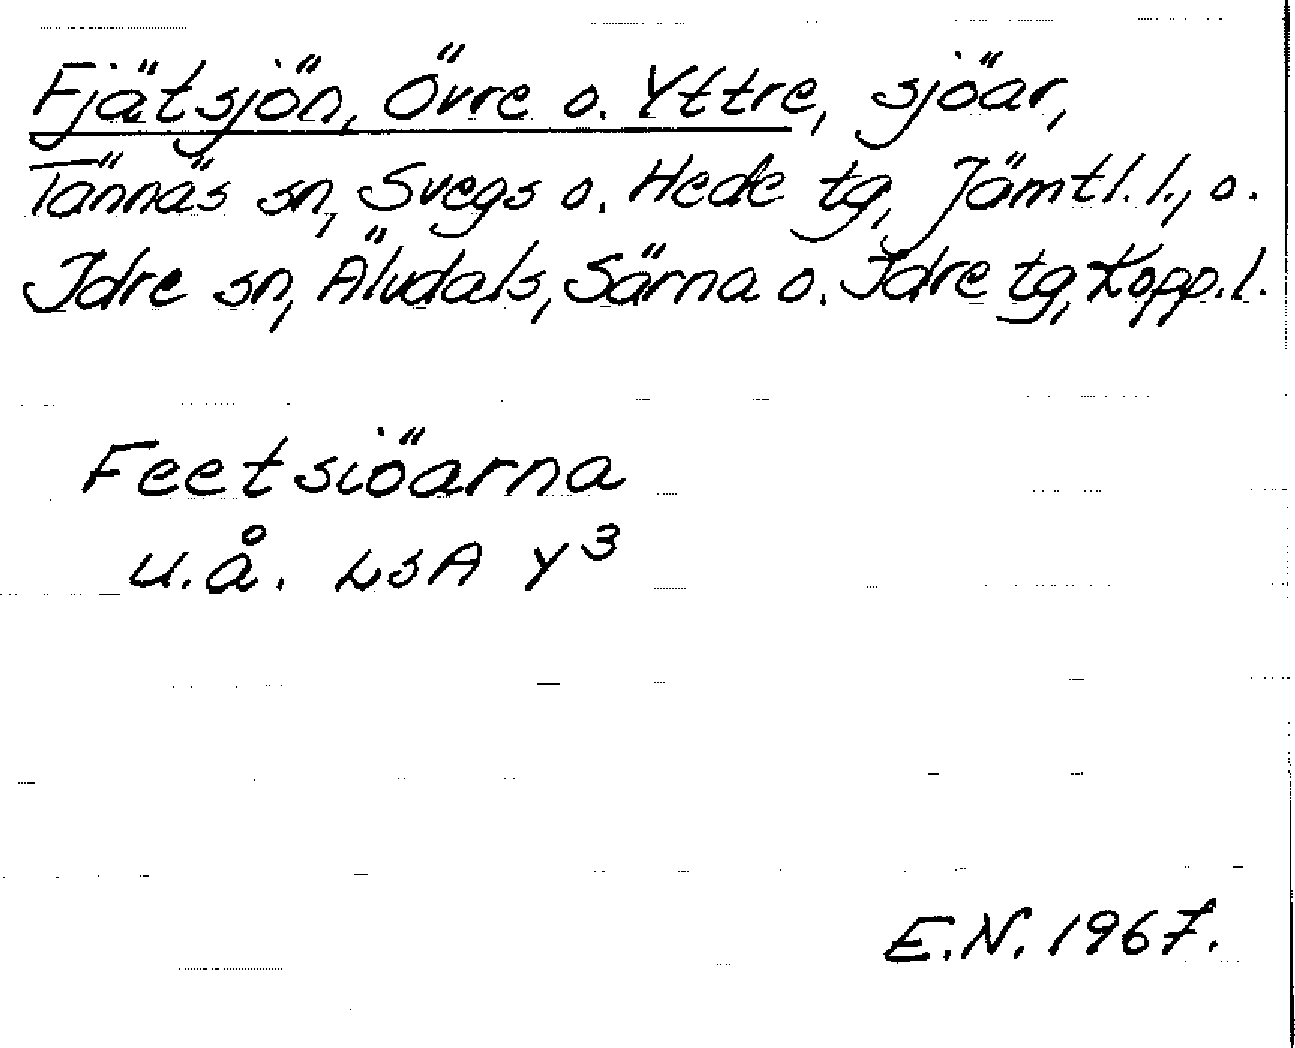 Fjätsjön, Övre o. Yttre, sjöar,
Tännäs sn, Svegs o. Hede tg, Jämtl. l., o.
Idre sn, Älvdals, Särna o. Idre tg, Kopp. l.
Feetsiöarna
u.å. LSA Y³
E.N. 1967.